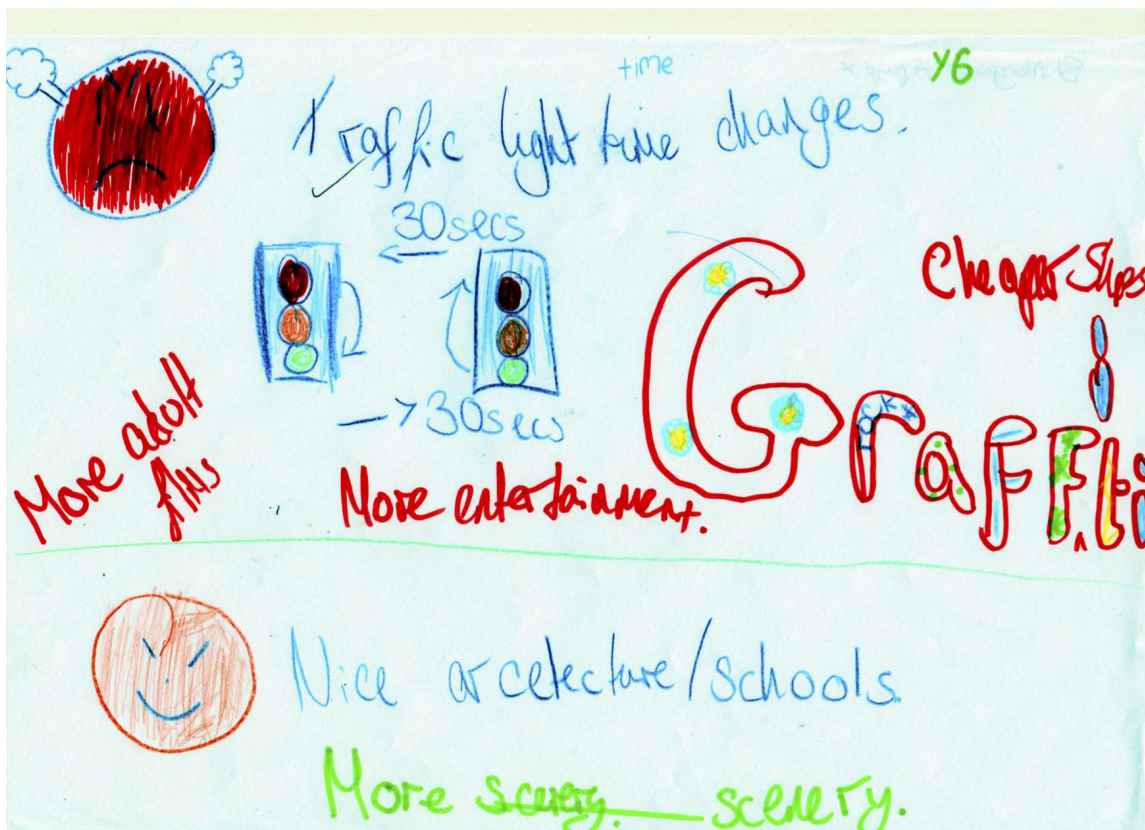 time
Y6
Traffic light time changes.
30secs
Cheaper Shops
->30secs
More adult
films
More entertainment.
Graffiti
rock
Nice arcetecture/schools.
More scenery. scenery.